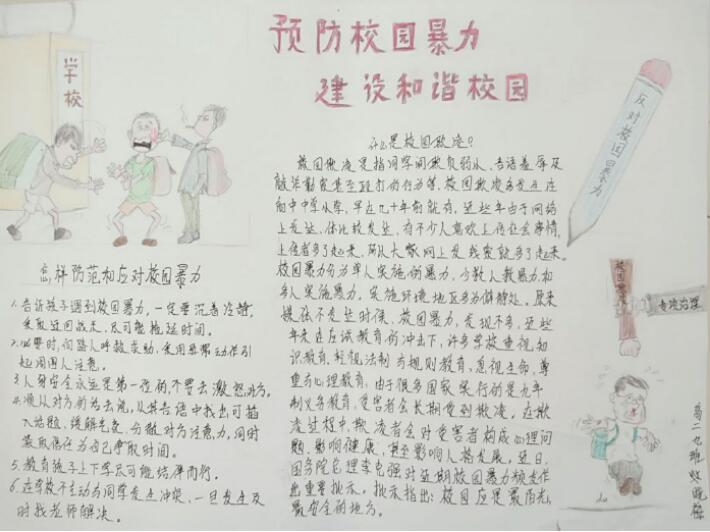 预防校园暴力
建设和谐校园
学校
反对校园暴力
什么是校园欺凌?
校园欺凌是指同学间欺负弱从、言语羞辱及
敲诈勒索甚至殴打的行为等,校园欺凌多发生在
的中中学小学,早在几十年前就有,近些年由于网络
上发达,体比较发生,有不少人喜欢上传社会事情,
上传者多了起来,所以大家网上发觉就多了起来。
校园暴力分为单人实施的暴力,少数人数暴力和
多人实施暴力,实施环境地区多为僻静处。原来
媒体不发达时候,校园暴力,发现不多,近些
年来在应试教育的冲击下,许多学校重视知
识教育,轻视法制与规则教育,忽视生命,尊
重与心理教育,由于很多国家实行的是九年
制义务教育,受害者会长期受到欺凌。在欺
凌过程中欺凌者会对受害者构成心理问
题,影响健康,甚至影响人格发展。近日,
国务院总理李克强对近期校园暴力频发作
出重要批示。批示指出:校园应是最阳光,
最安全的地方。
怎样防范和应对校园暴力
1.告诉孩子遇到校园暴力,一定要沉着冷静,
采取迂回战术,尽可能拖延时间。
2.必要时,向路人呼救求助,使用异常动作引
起周围人注意。
3.人身安全永远是第一位的,不要去激怒对方。
4.顺从对方的话去说,从其言语中找出可插
入话题,缓解气氛,分散对方注意力,同时
获取信任为自己争取时间。
5.教育孩子上下学尽可能结伴而行。
6.在学校不主动与同学发生冲突,一旦发生及
时找老师解决。
校园暴力
专项治理
高二九班